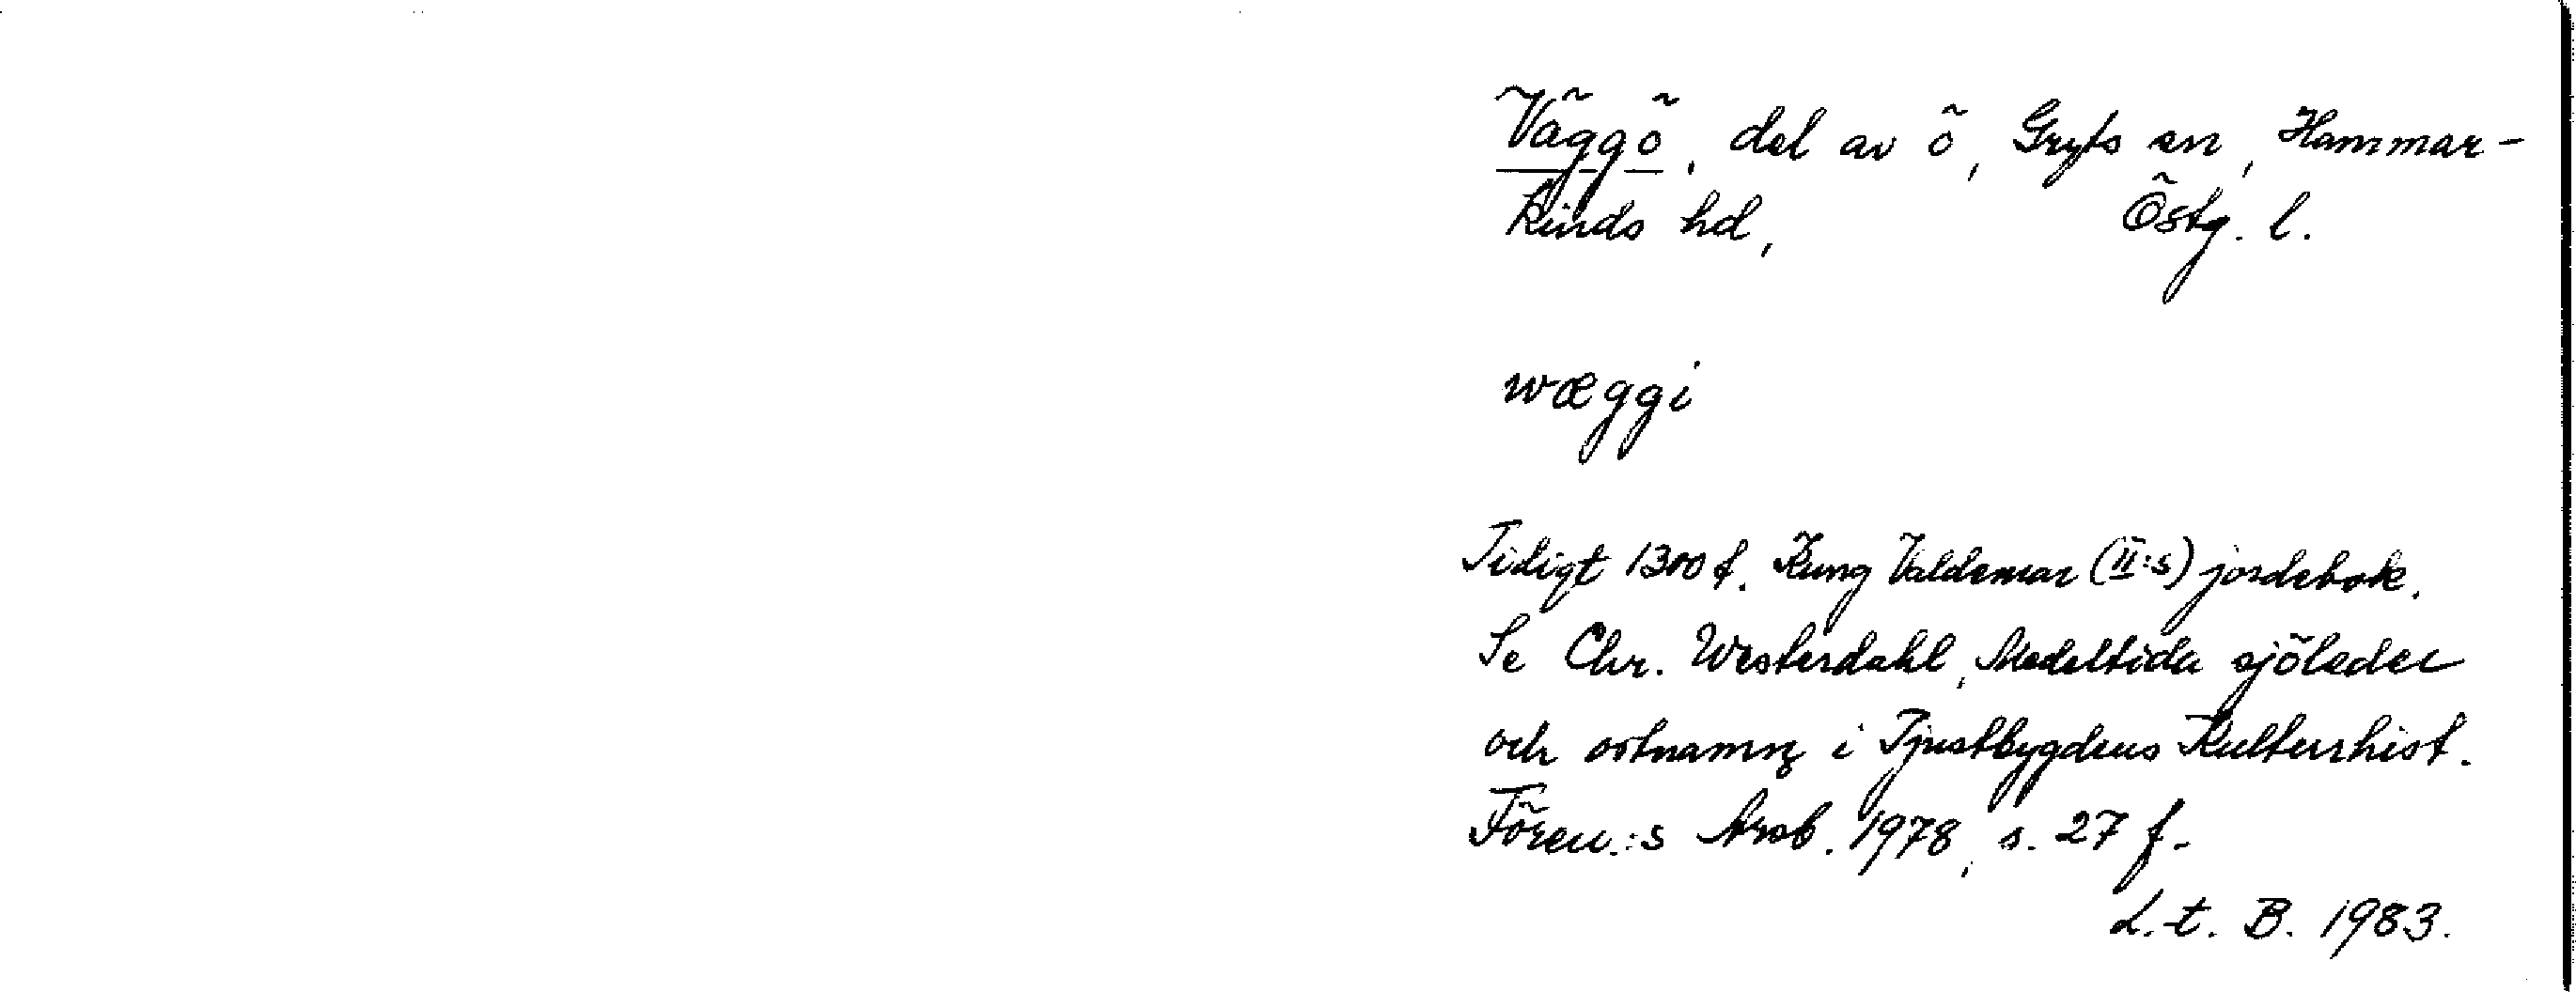 Väggö, del av ö, Gryts sn, Hammar-
kinds hd, Östg. l.
wæggi
Tidigt 1300 t. Kung Valdemar (II:s) jordebok.
Se Chr. Westerdahl, Medeltida sjöleder
och ortnamn i Tjustbygdens Kulturhist.
Fören.:s Årsb. 1978, s. 27 f.
L. t. B. 1983.